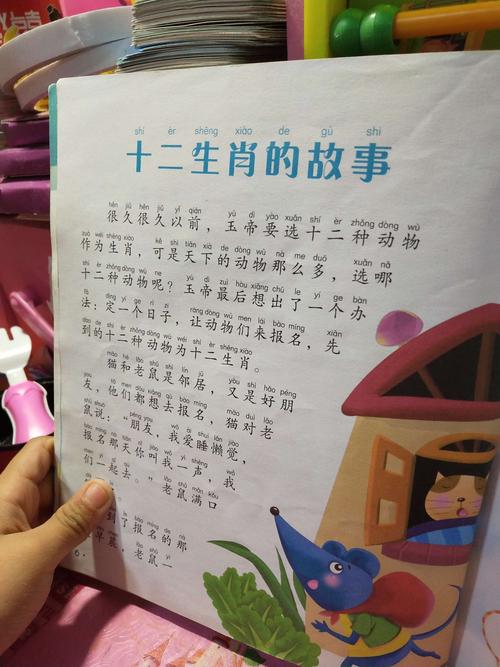 shí èr shēng xiào de gù shi
十二生肖的故事
hěn jiǔ hěn jiǔ yǐ qián yù dì yào xuǎn shí èr zhǒng dòng wù
很久很久以前，玉帝要选十二种动物
zuò wéi shēng xiào kě shì tiān xià de dòng wù nà me duō xuǎn nǎ
作为生肖，可是天下的动物那么多，选哪
shí èr zhǒng dòng wù ne yù dì zuì hòu xiǎng chū le yí ge bàn
十二种动物呢？玉帝最后想出了一个办
fǎ dìng yí ge rì zi ràng dòng wù men lái bào míng xiān
法，定一个日子，让动物们来报名，先
dào de shí èr zhǒng dòng wù wéi shí èr shēng xiào
到的十二种动物为十二生肖。
māo hé lǎo shǔ shì lín jū yòu shì hǎo péng
猫和老鼠是邻居，又是好朋
you tā men dōu xiǎng qù bào míng māo duì lǎo
友，他们都想去报名，猫对老
shǔ shuō péng you wǒ ài shuì lǎn jiào
鼠说：“朋友，我爱睡懒觉，
bào míng nà tiān nǐ jiào wǒ yì shēng wǒ
报名那天你叫我一声，我
men yì qǐ qù lǎo shǔ mǎn kǒu
们一起去。”老鼠满口
dào le bào míng de nà
到了报名的那
zǎo chen lǎo shǔ yì
早晨，老鼠一